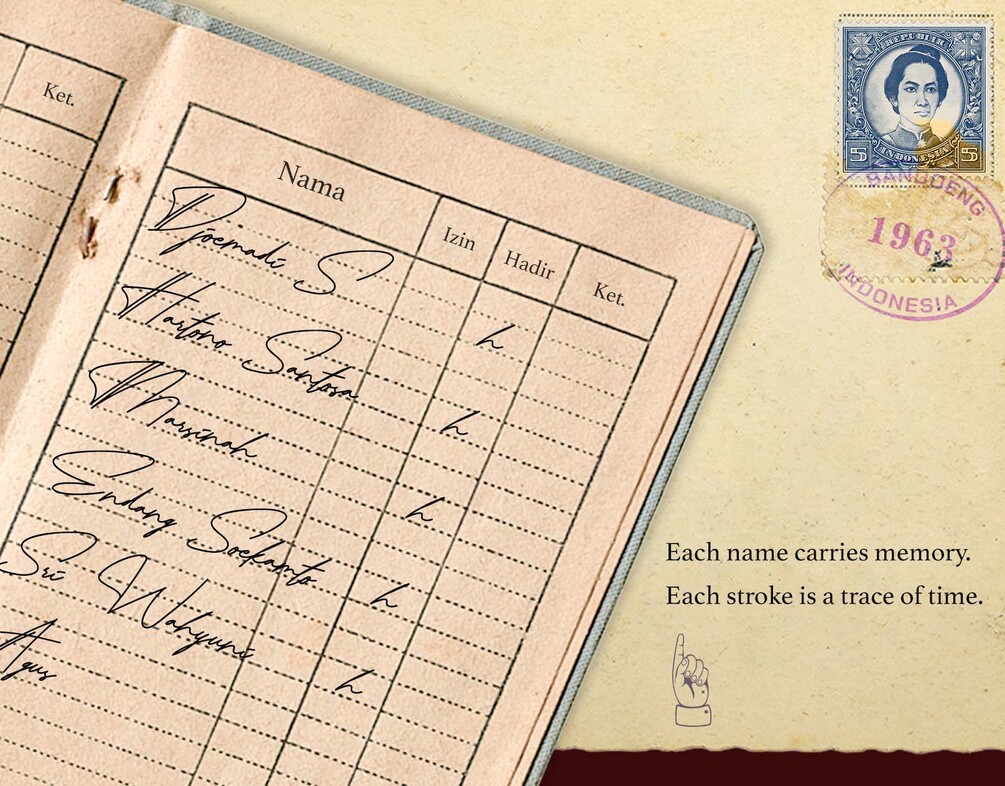 Ket.
Nama
Izin
Hadir
Ket.
Djoemadi S
h
Hartono Santosa
h
Marsinah
h
Endang Soekamto
h
Sri Wahyuni
h
Agus
REPUBLIK
INDONESIA
5 5
BANDOENG
1963
INDONESIA
Each name carries memory.
Each stroke is a trace of time.